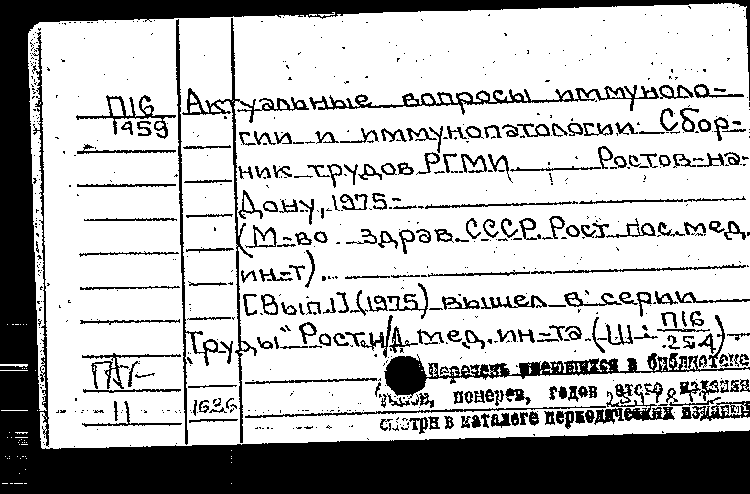 П16
1459
Актуальные вопросы иммуноло-
гии и иммунопатологии. Сбор-
ник трудов РГМИ. Ростов-на-
Дону, 1975-
(М-во здрав. СССР. Рост. гос. мед.
ин-т).
[Вып.1] (1975) вышел в серии
"Труды" Рост.н/Д. мед. ин-та (Ш: П16/254)
Перечень имеющихся в библиотеке
томов, номеров, годов этого издания
смотри в каталоге периодических изданий
11
1636